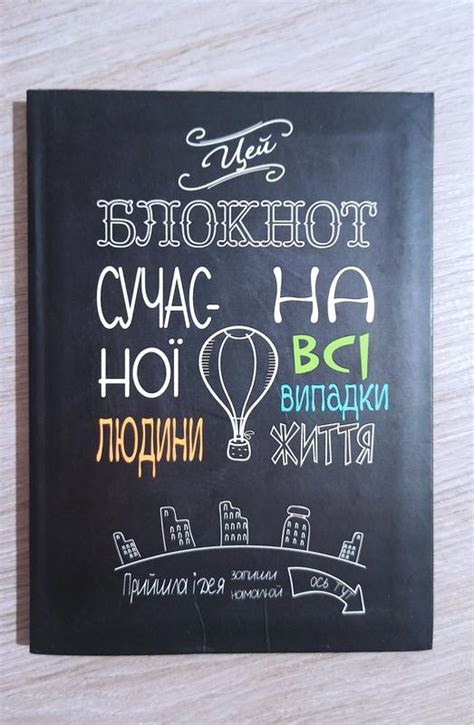 Цей
БЛОКНОТ
СУЧАС-
НОЇ
ЛЮДИНИ
НА
ВСІ
ВИПАДКИ
ЖИТТЯ
Прийшла ідея запиши намалюй ось тут